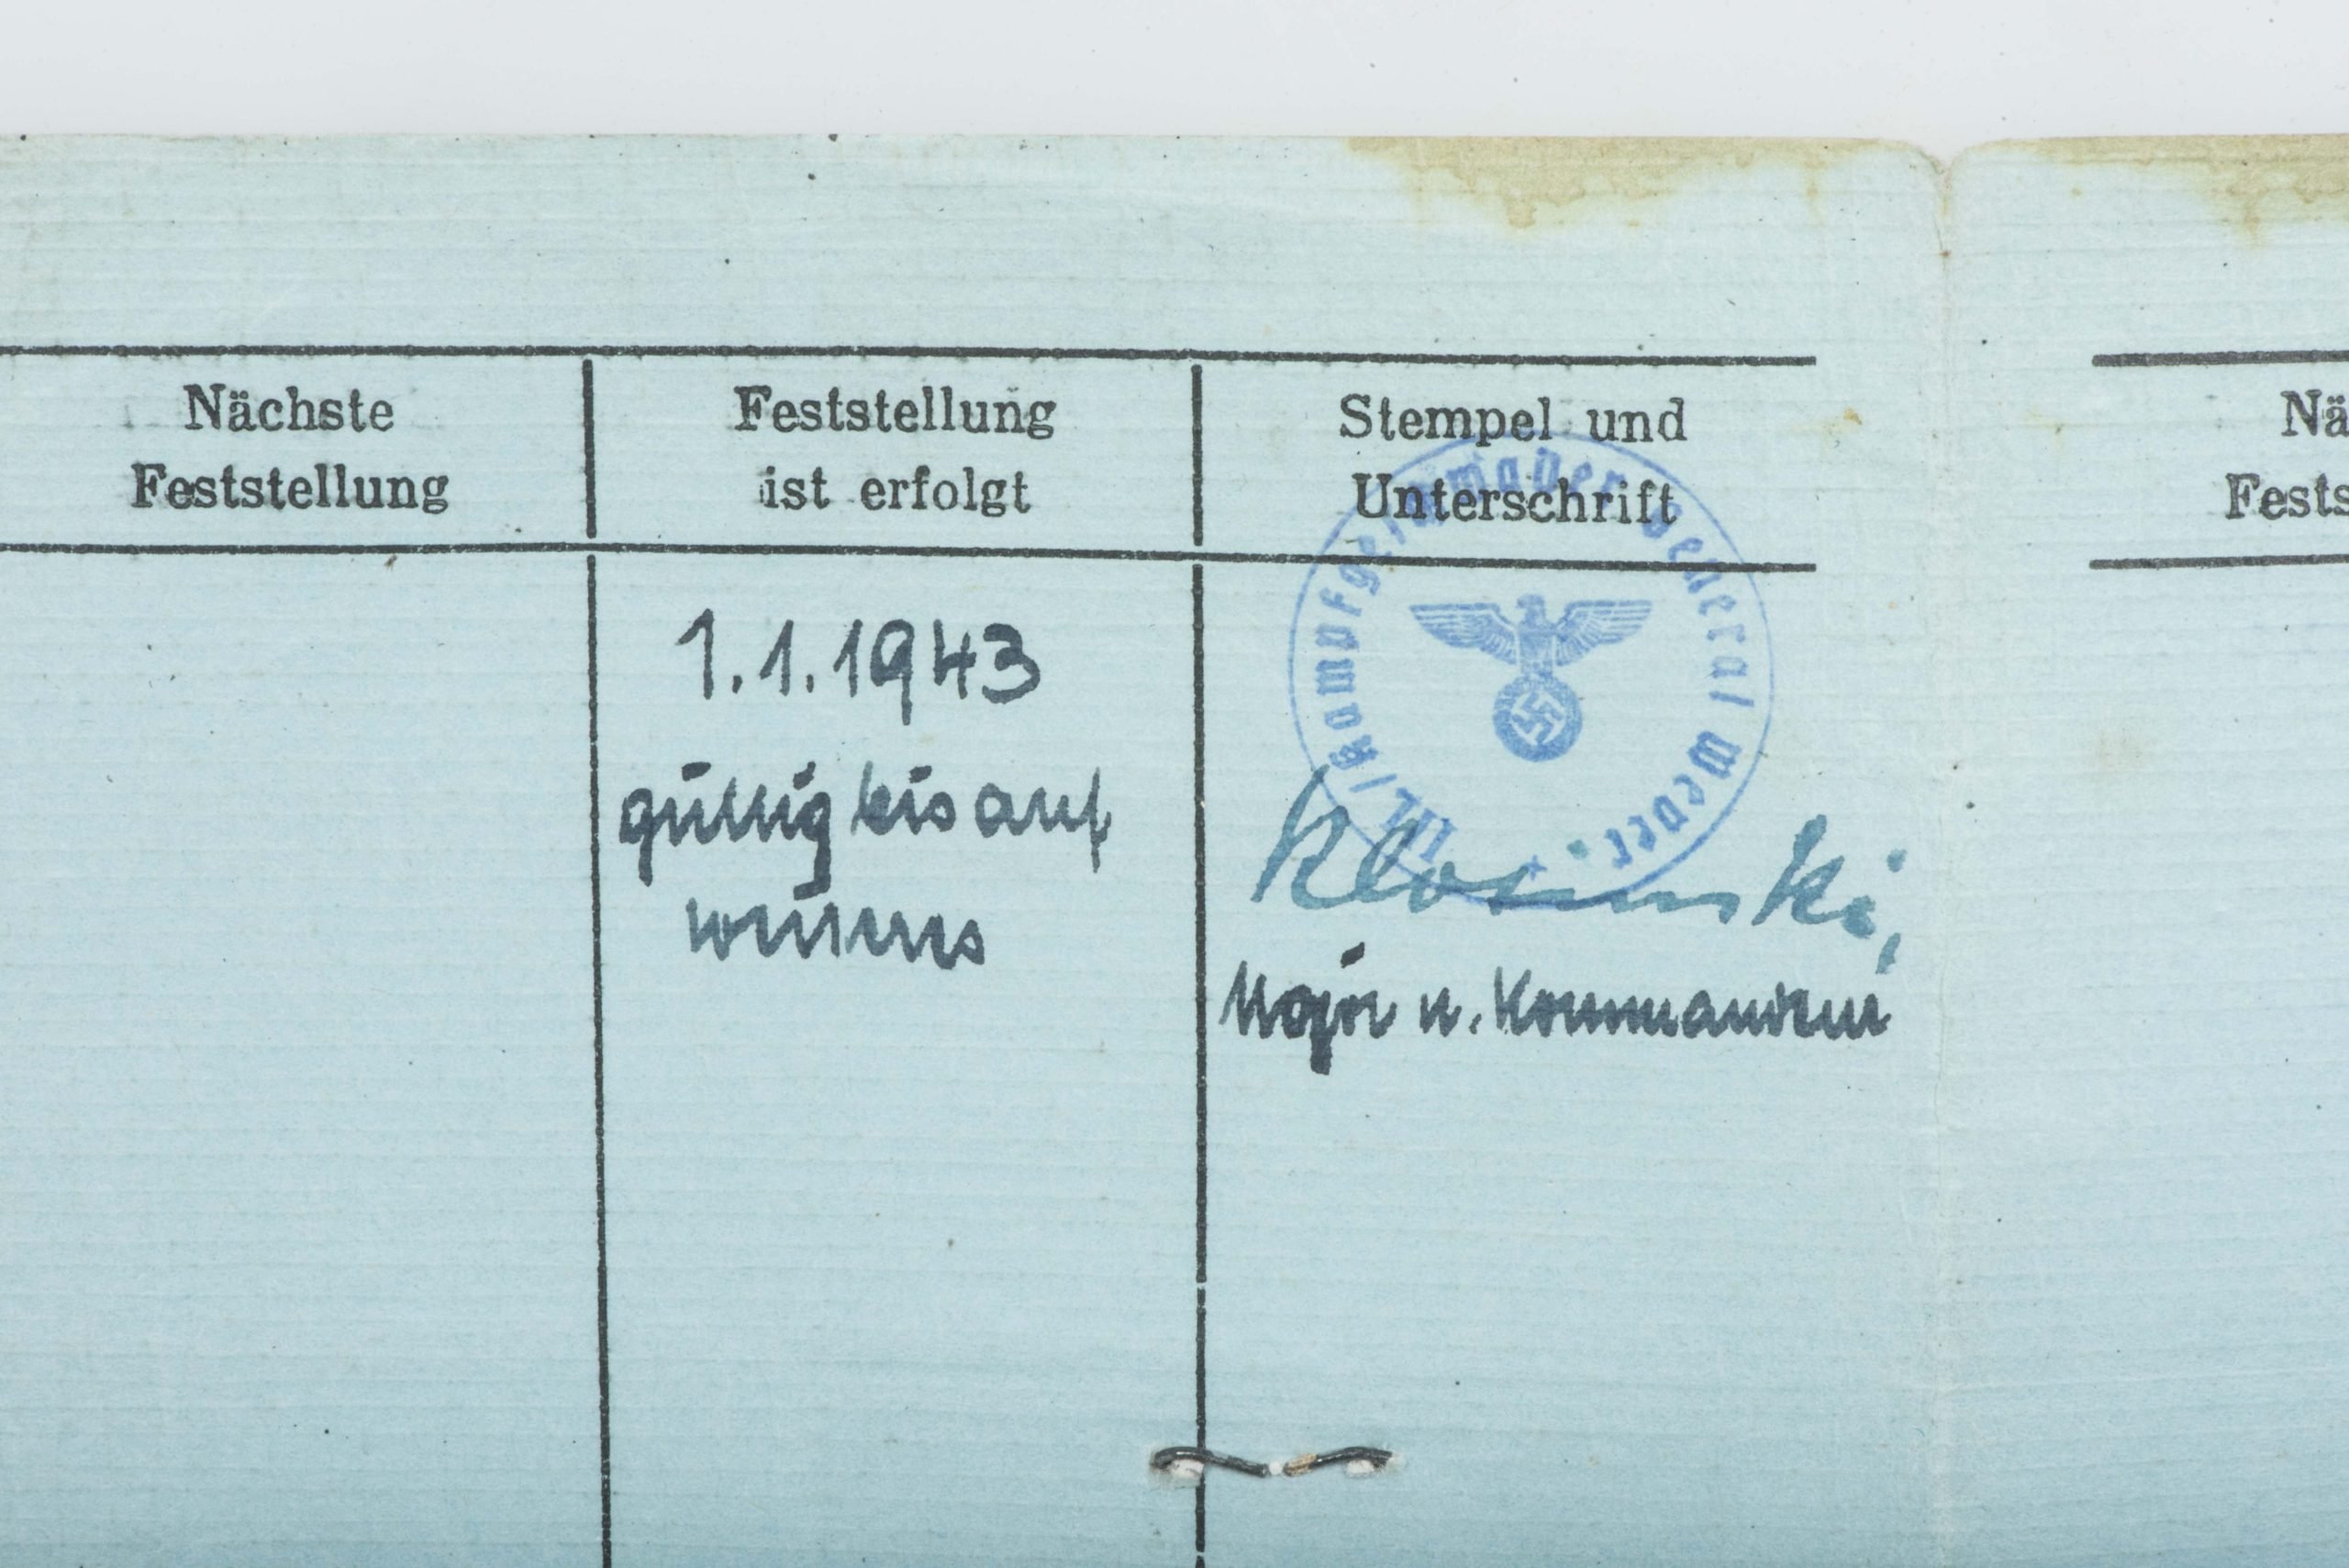 Nächste
Feststellung
Feststellung
ist erfolgt
Stempel und
Unterschrift
Nä
Fests
1.1.1943
gültig bis auf
weiteres
III./Kampfgeschwader General Wever
Klosinski,
Major u. Kommandeur